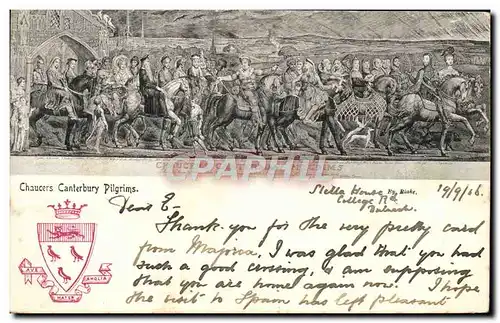 CPArama
Chaucers Canterbury Pilgrims.
Stella House
College Rd
Dulwich.
19/9/06
AVE MATER ANGLIA
Dear E-
Thank you for the very pretty card
from Majorca, I was glad that you had
such a good crossing, & am supposing
that you are home again now. I hope
the visit to Spain has left pleasant